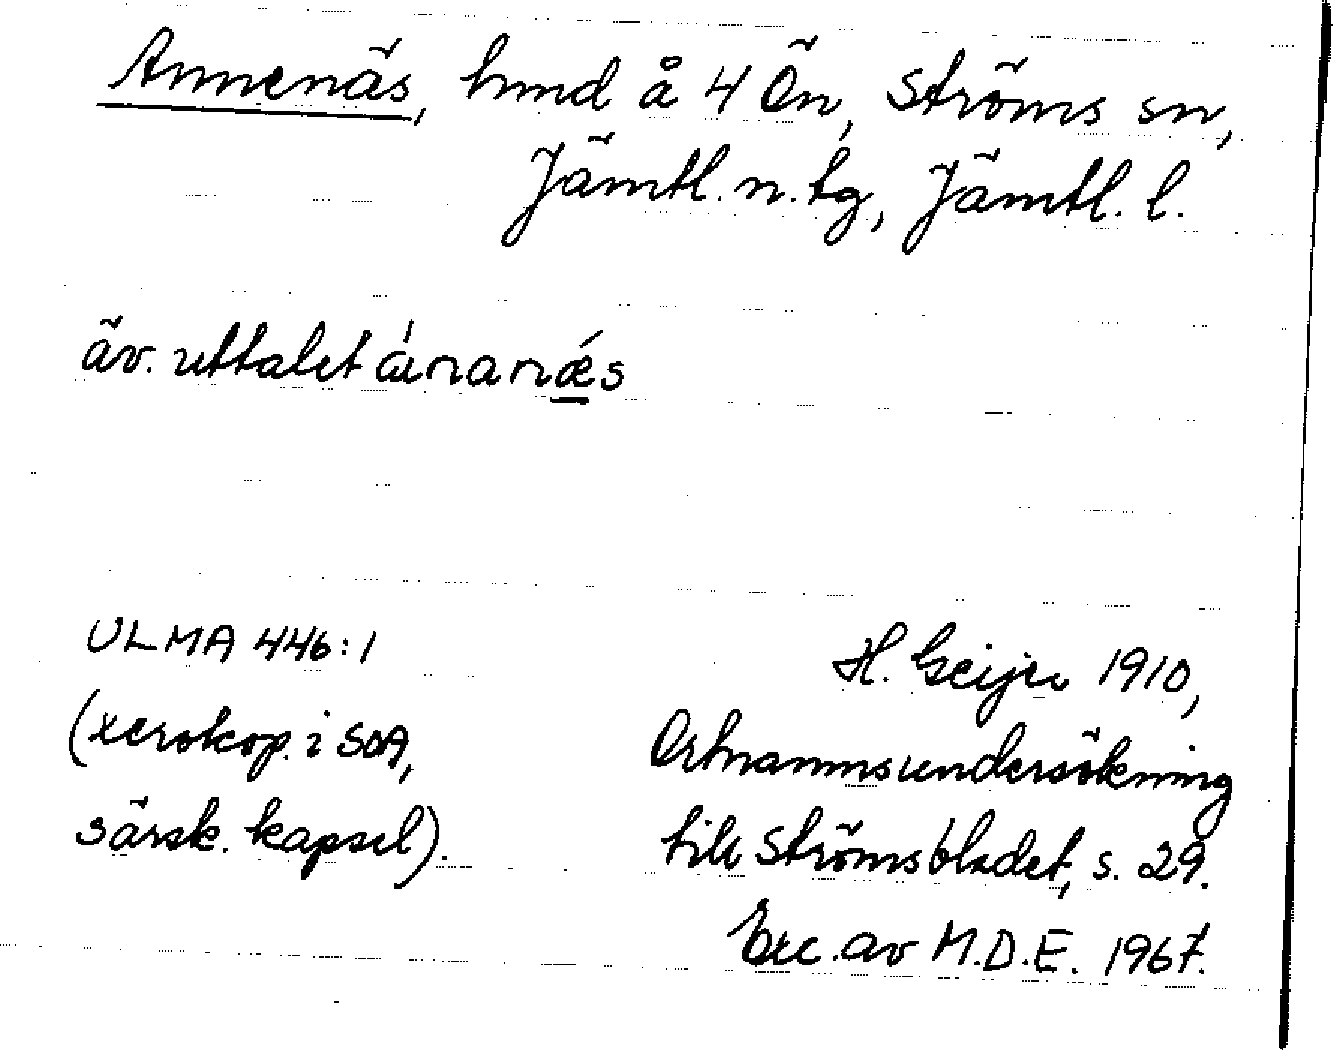 Annenäs, hmd å 4 Ön, Ströms sn,
Jämtl. n. tg, Jämtl. l.
äv. uttalet ánanǽ̲s
ULMA 446:1
(xerokop. i SOA,
särsk. kapsel).
H. Geijer 1910,
Ortnamnsundersökning
till Strömsbladet, s. 29.
Exc. av M.D.E. 1967.